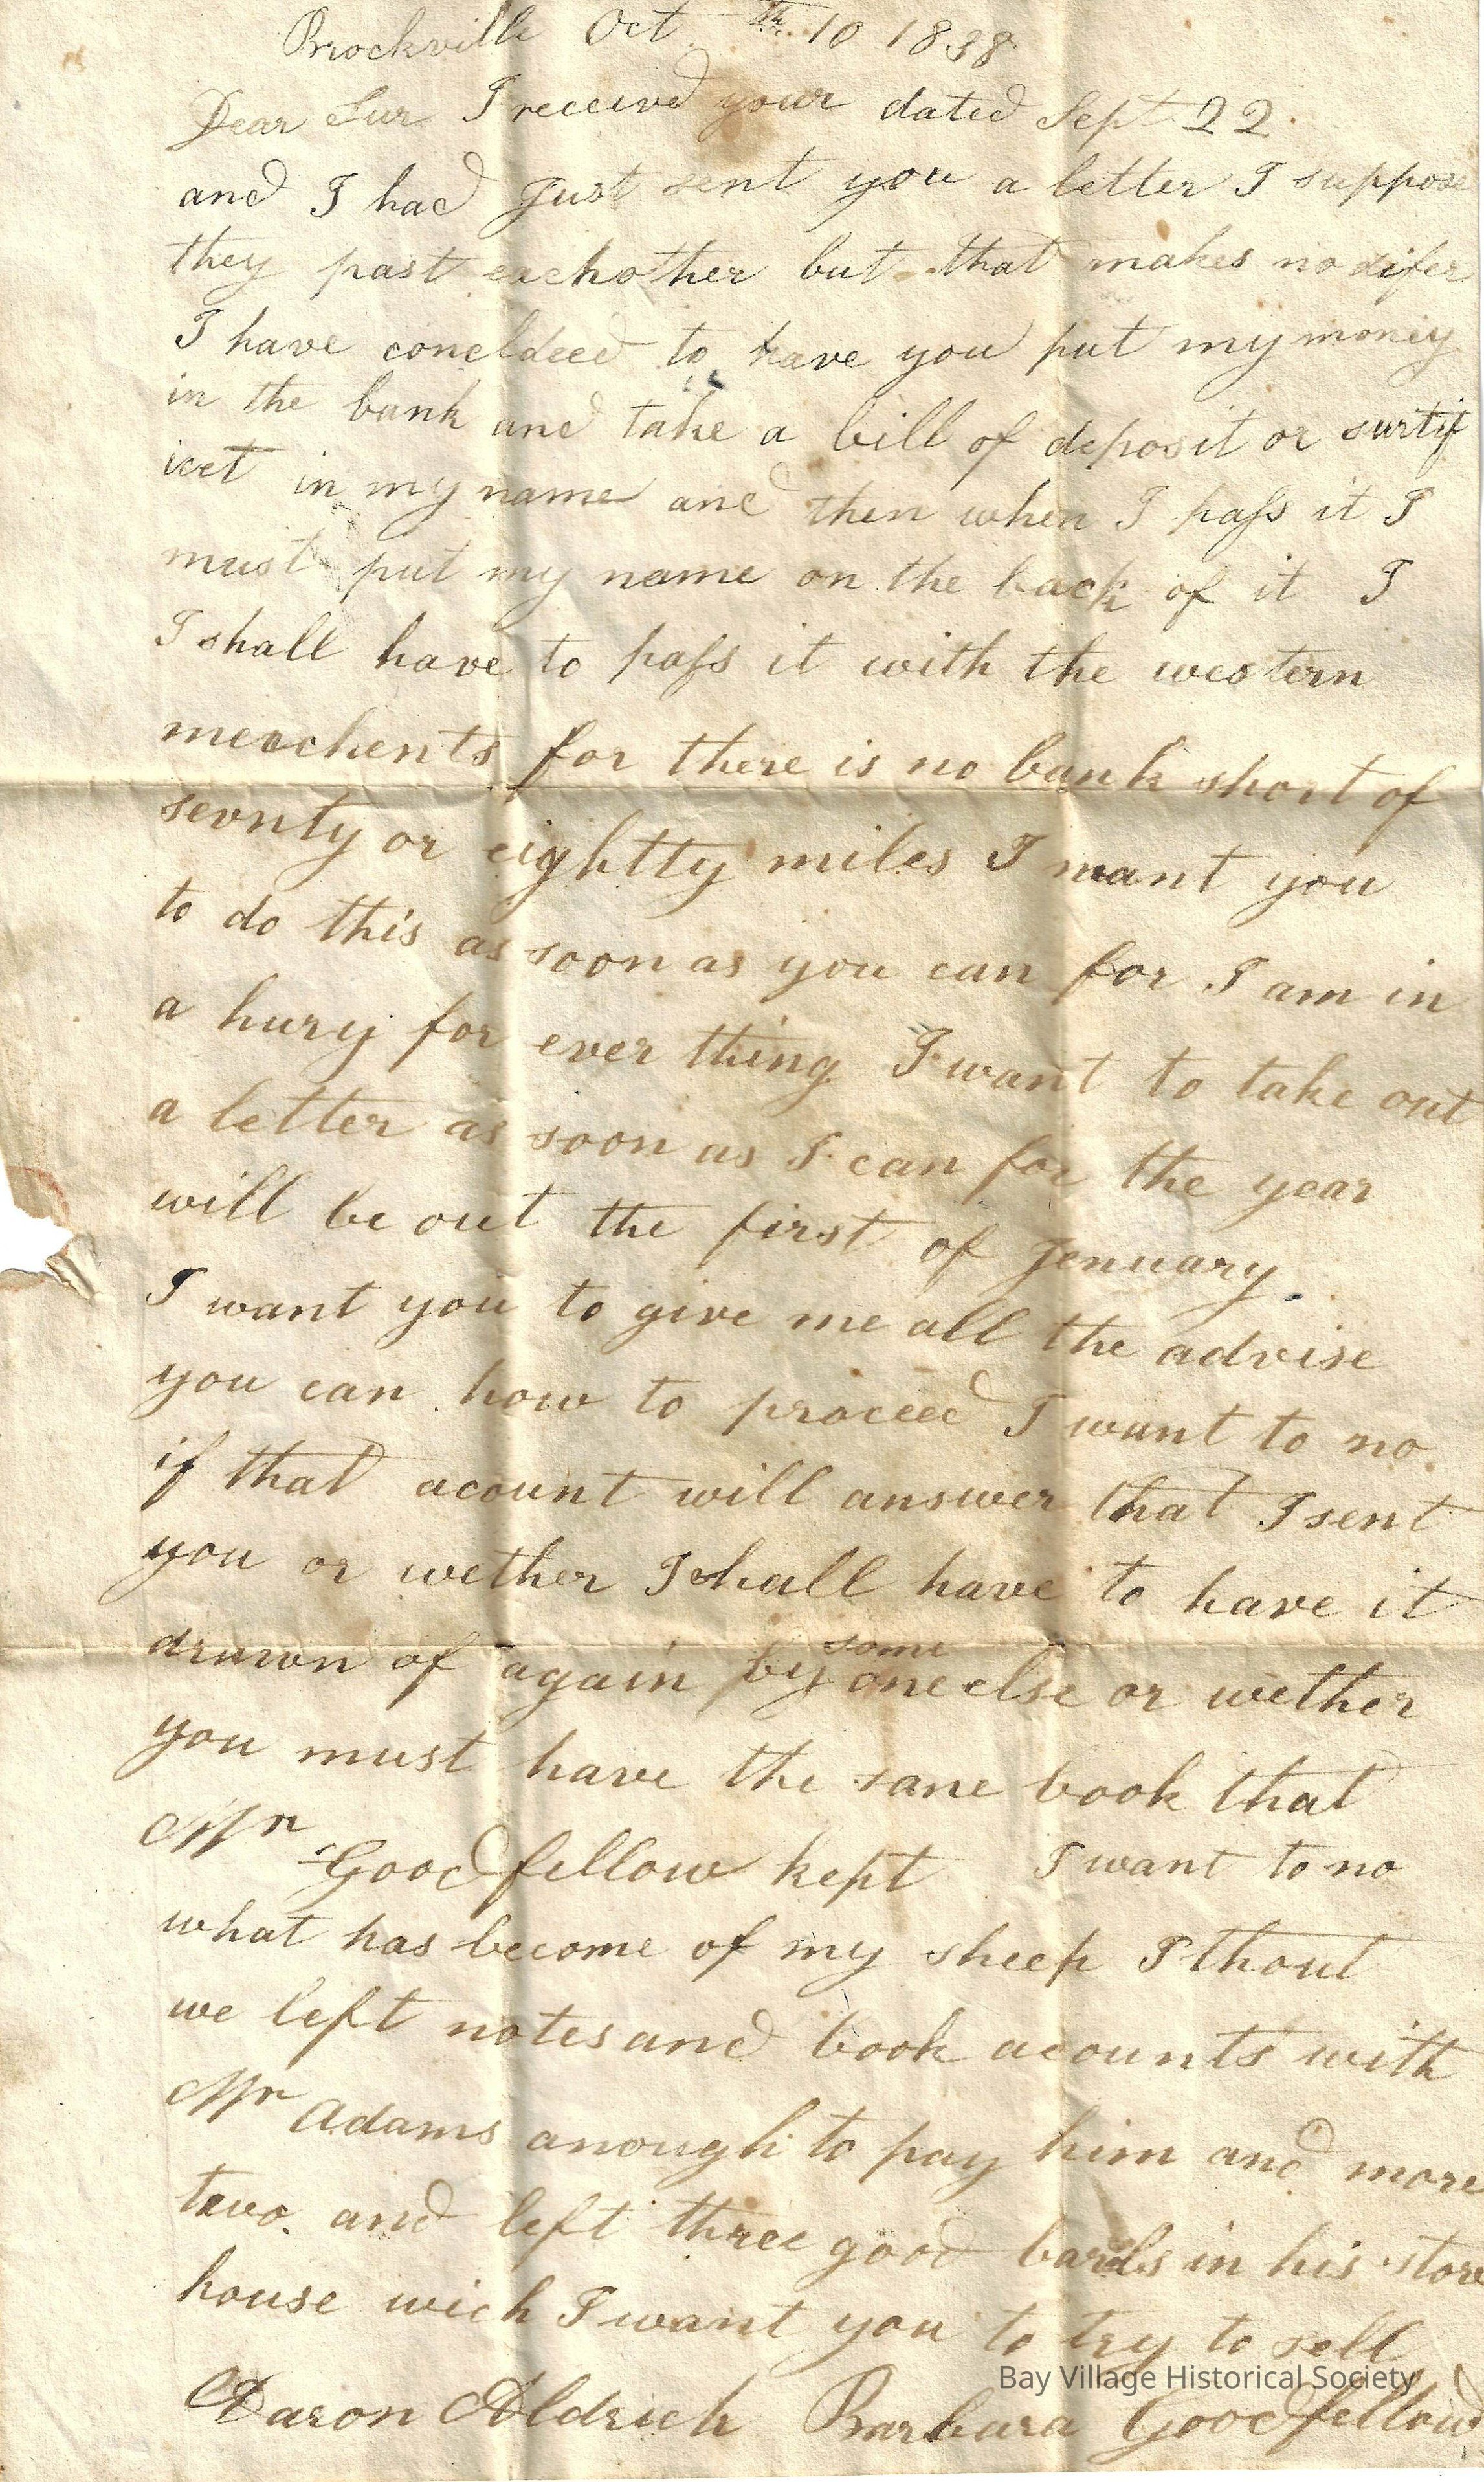 Brockville Oct th 10 1838
Dear Sur I received your dated Sept 22
and I had Just sent you a letter I suppose
they past eachother but that makes no difer
I have concldeed to have you put my money
in the bank and take a bill of deposit or surtif
icet in my name and then when I pass it I
must put my name on the back of it I
I shall have to pass it with the western
merchents for there is no bank short of
sevnty or eightty miles I want you
to do this as soon as you can for I am in
a hury for ever thing I want to take out
a letter as soon as I can for the year
will be out the first of Jenuary
I want you to give me all the advise
you can how to proceed I want to no
if that acount will answer that I sent
you or wether I shall have to have it
drawn of again by some one else or wether
you must have the sane book that
Mr Goodfellow kept I want to no
what has become of my sheep I thout
we left notes and book acounts with
Mr Adams anough to pay him and more
two and left three good barils in his store
house wich I want you to try to sell
Bay Village Historical Society
Aaron Aldrich Barbara Goodfellow